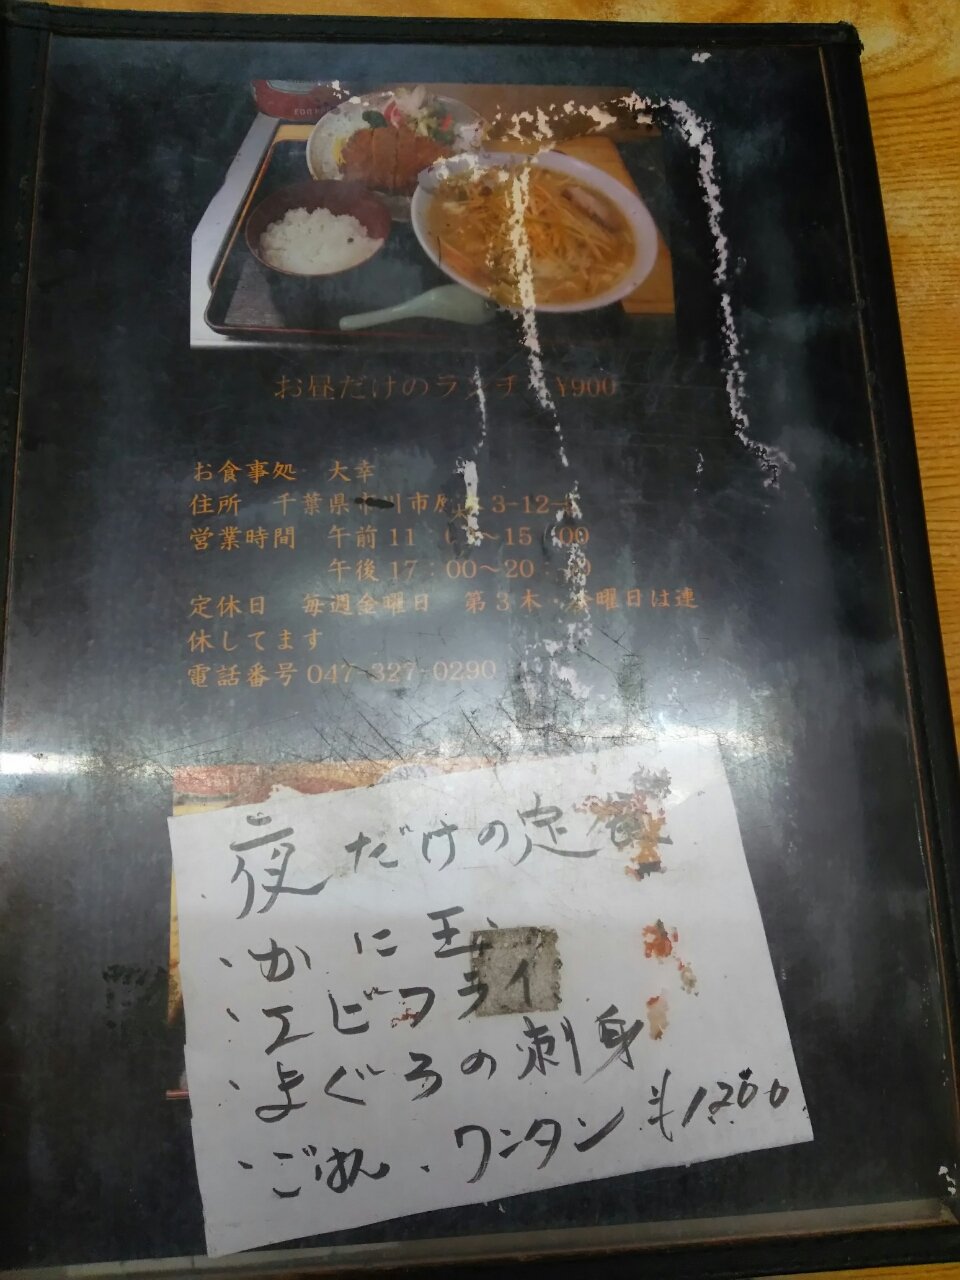 お昼だけのランチ ¥900
お食事処 大幸
住所 千葉県市川市 3-12-
営業時間 午前11：00～15：00
午後17：00～20：
定休日 毎週金曜日 第3木・金曜日は連
休してます
電話番号047-327-0290
夜だけの定食
・かに玉
・エビフライ
・まぐろの刺身
・ごはん・ワンタン ¥1200